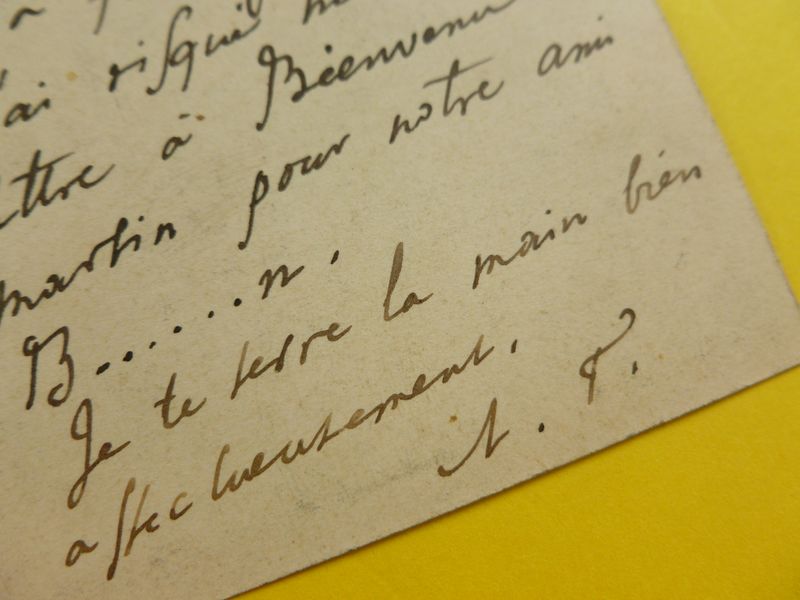 j'ai risqué
ttre à Bienvenu
martin pour notre ami
B......n.
Je te serre la main bien
affectueusement.
A. F.